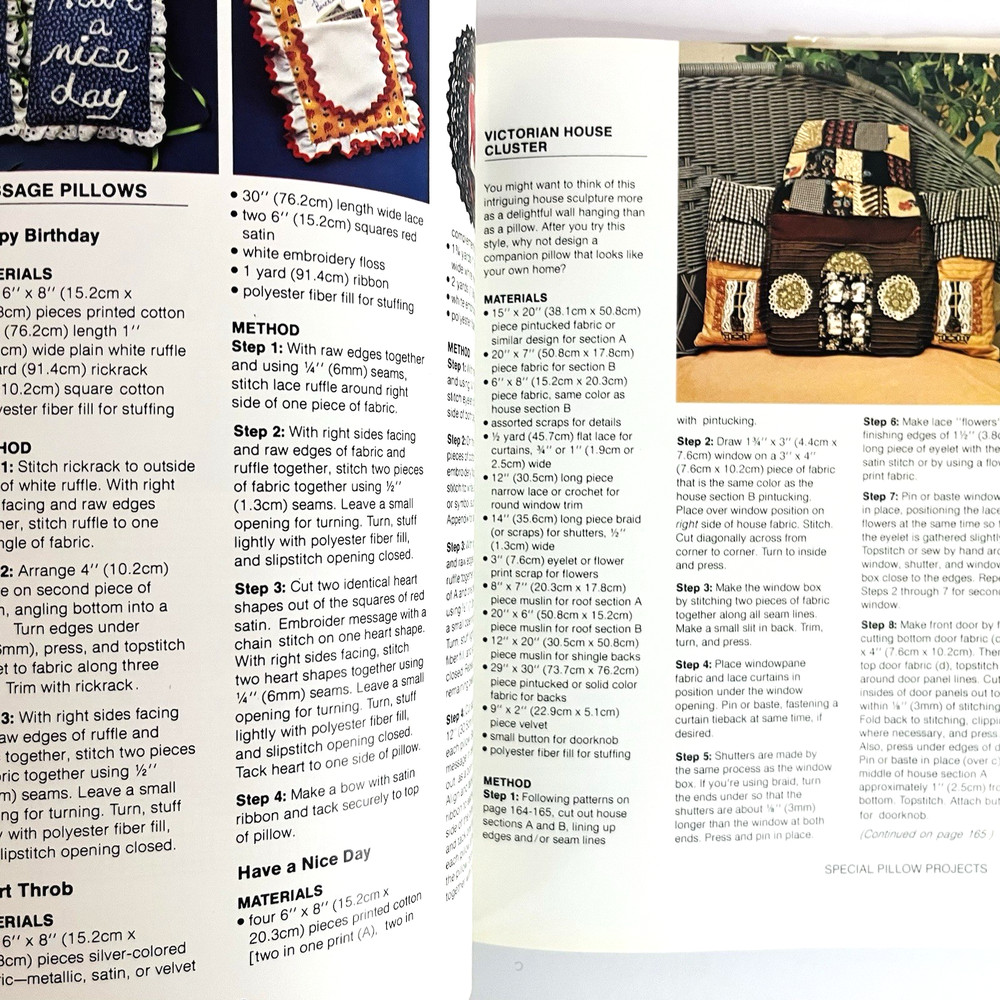 Have
a
nice
day
SSAGE PILLOWS
py Birthday
ERIALS
6'' x 8'' (15.2cm x
3cm) pieces printed cotton
(76.2cm) length 1''
cm) wide plain white ruffle
ard (91.4cm) rickrack
10.2cm) square cotton
yester fiber fill for stuffing
HOD
1: Stitch rickrack to outside
of white ruffle. With right
facing and raw edges
her, stitch ruffle to one
ngle of fabric.
2: Arrange 4'' (10.2cm)
e on second piece of
n, angling bottom into a
Turn edges under
6mm), press, and topstitch
et to fabric along three
Trim with rickrack.
3: With right sides facing
aw edges of ruffle and
together, stitch two pieces
ric together using ½''
m) seams. Leave a small
ng for turning. Turn, stuff
y with polyester fiber fill,
lipstitch opening closed.
rt Throb
ERIALS
6'' x 8'' (15.2cm x
3cm) pieces silver-colored
ric—metallic, satin, or velvet
• 30'' (76.2cm) length wide lace
• two 6'' (15.2cm) squares red
satin
• white embroidery floss
• 1 yard (91.4cm) ribbon
• polyester fiber fill for stuffing
METHOD
Step 1: With raw edges together
and using ¼'' (6mm) seams,
stitch lace ruffle around right
side of one piece of fabric.
Step 2: With right sides facing
and raw edges of fabric and
ruffle together, stitch two pieces
of fabric together using ½''
(1.3cm) seams. Leave a small
opening for turning. Turn, stuff
lightly with polyester fiber fill,
and slipstitch opening closed.
Step 3: Cut two identical heart
shapes out of the squares of red
satin. Embroider message with a
chain stitch on one heart shape.
With right sides facing, stitch
two heart shapes together using
¼'' (6mm) seams. Leave a small
opening for turning. Turn, stuff
lightly with polyester fiber fill,
and slipstitch opening closed.
Tack heart to one side of pillow.
Step 4: Make a bow with satin
ribbon and tack securely to top
of pillow.
Have a Nice Day
MATERIALS
• four 6'' x 8'' (15.2cm x
20.3cm) pieces printed cotton
[two in one print (A), two in
VICTORIAN HOUSE
CLUSTER
You might want to think of this
intriguing house sculpture more
as a delightful wall hanging than
as a pillow. After you try this
style, why not design a
companion pillow that looks like
your own home?
MATERIALS
• 15'' x 20'' (38.1cm x 50.8cm)
piece pintucked fabric or
similar design for section A
• 20'' x 7'' (50.8cm x 17.8cm)
piece fabric for section B
• 6'' x 8'' (15.2cm x 20.3cm)
piece fabric, same color as
house section B
• assorted scraps for details
• ½ yard (45.7cm) flat lace for
curtains, ¾'' or 1'' (1.9cm or
2.5cm) wide
• 12'' (30.5cm) long piece
narrow lace or crochet for
round window trim
• 14'' (35.6cm) long piece braid
(or scraps) for shutters, ½''
(1.3cm) wide
• 3'' (7.6cm) eyelet or flower
print scrap for flowers
• 8'' x 7'' (20.3cm x 17.8cm)
piece muslin for roof section A
• 20'' x 6'' (50.8cm x 15.2cm)
piece muslin for roof section B
• 12'' x 20'' (30.5cm x 50.8cm)
piece muslin for shingle backs
• 29'' x 30'' (73.7cm x 76.2cm)
pintucked or solid color
fabric for backs
• 9'' x 2'' (22.9cm x 5.1cm)
piece velvet
• small button for doorknob
• polyester fiber fill for stuffing
METHOD
Step 1: Following patterns on
page 164-165, cut out house
sections A and B, lining up
edges and/or seam lines
with pintucking.
Step 2: Draw 1¾'' x 3'' (4.4cm x
7.6cm) window on a 3'' x 4''
(7.6cm x 10.2cm) piece of fabric
that is the same color as the
house section B pintucking.
Place over window position on
right side of house fabric. Stitch.
Cut diagonally across from
corner to corner. Turn to inside
and press.
Step 3: Make the window box
by stitching two pieces of fabric
together along all seam lines.
Make a small slit in back. Trim,
turn, and press.
Step 4: Place windowpane
fabric and lace curtains in
position under the window
opening. Pin or baste, fastening a
curtain tieback at same time, if
desired.
Step 5: Shutters are made by
the same process as the window
box. If you're using braid, turn
the ends under so that the
shutters are about ⅛'' (3mm)
longer than the window at both
ends. Press and pin in place.
Step 6: Make lace "flowers"
finishing edges of 1½'' (3.8c
long piece of eyelet with the
satin stitch or by using a flow
print fabric.
Step 7: Pin or baste window
in place, positioning the lace
flowers at the same time so t
the eyelet is gathered slightly
Topstitch or sew by hand aro
window, shutter, and window
box close to the edges. Repe
Steps 2 through 7 for second
window.
Step 8: Make front door by f
cutting bottom door fabric (c
x 4'' (7.6cm x 10.2cm). Then
top door fabric (d), topstitch
around door panel lines. Cut
insides of door panels out to
within ⅛'' (3mm) of stitching
Fold back to stitching, clippi
where necessary, and press.
Also, press under edges of d
Pin or baste in place (over c)
middle of house section A
approximately 1'' (2.5cm) fro
bottom. Topstitch. Attach but
for doorknob
(Continued on page 165 )
SPECIAL PILLOW PROJECTS